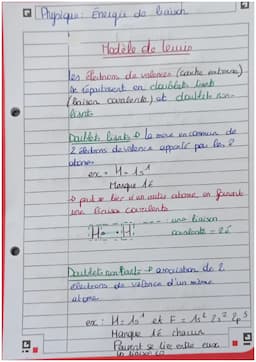 Physique: Énergie de liaison
Modèle de lewis
les électrons de valences (couche externe)
se répartissent en doublets liants
(liaison covalente) et doublets non-
liants
Doublets liants → la mise en commun de
2 électrons de valence apporté par les 2
atomes
ex = H = 1s¹
Manque 1é
→ peut se lier à un autre atome en formant
une liaison covalente
H· ·H : une liaison
covalente = 2é
Doublets non liants → association de 2
électrons de valence d'un même
atome
ex: H = 1s¹ et F = 1s² 2s² 2p⁵
Manque 1é chacun
Peuvent se lier entre eux